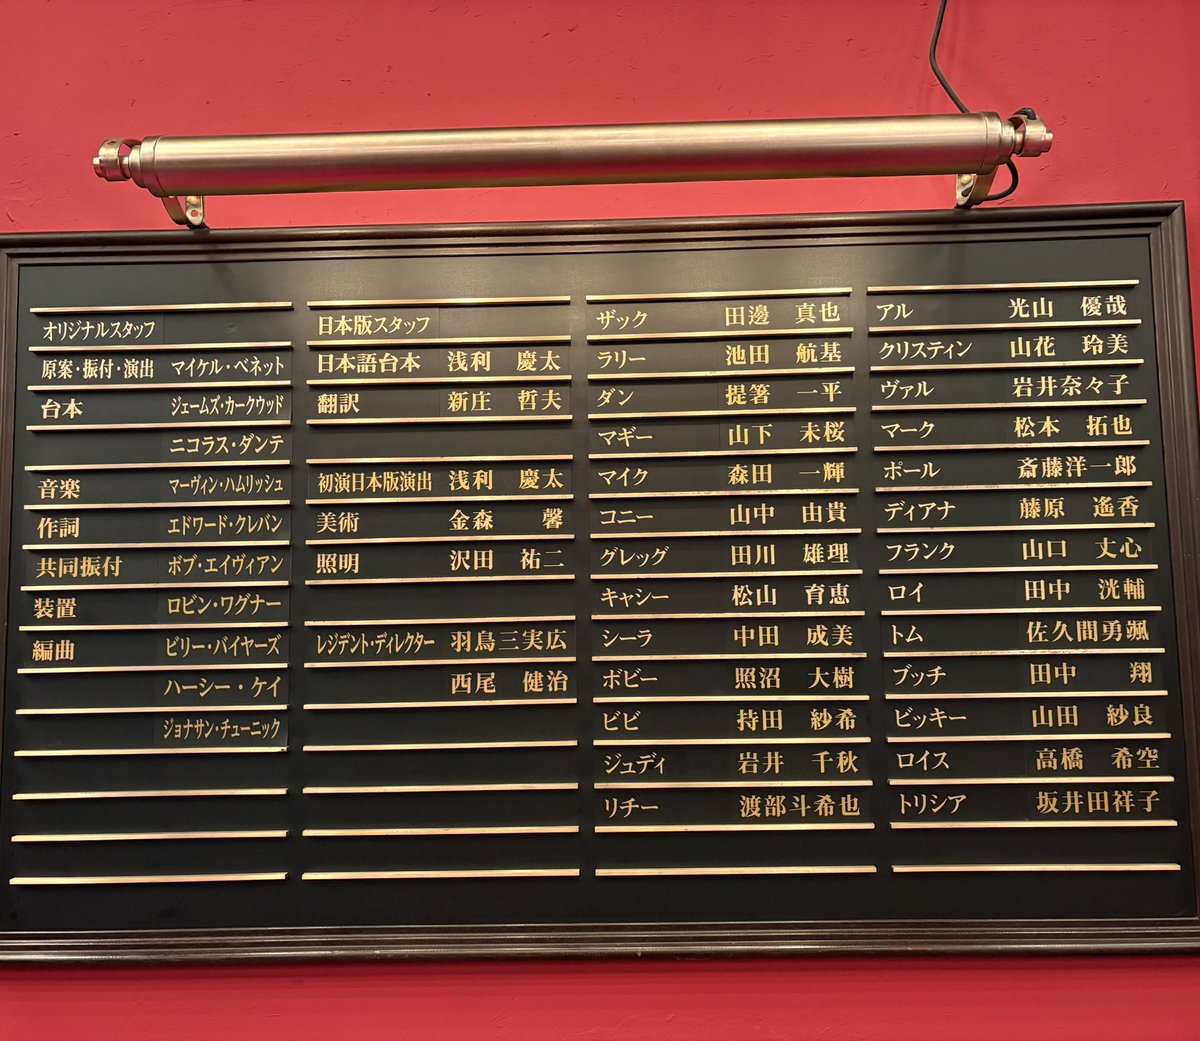 オリジナルスタッフ
原案・振付・演出 マイケル・ベネット
台本 ジェームズ・カークウッド
ニコラス・ダンテ
音楽 マーヴィン・ハムリッシュ
作詞 エドワード・クレバン
共同振付 ボブ・エイヴィアン
装置 ロビン・ワグナー
編曲 ビリー・バイヤーズ
ハーシー・ケイ
ジョナサン・チューニック
日本版スタッフ
日本語台本 浅利 慶太
翻訳 新庄 哲夫
初演日本版演出 浅利 慶太
美術 金森 馨
照明 沢田 祐二
レジデント・ディレクター 羽鳥三実広
西尾 健治
ザック 田邊 真也
ラリー 池田 航基
ダン 提箸 一平
マギー 山下 未桜
マイク 森田 一輝
コニー 山中 由貴
グレッグ 田川 雄理
キャシー 松山 育恵
シーラ 中田 成美
ボビー 照沼 大樹
ビビ 持田 紗希
ジュディ 岩井 千秋
リチー 渡部斗希也
アル 光山 優哉
クリスティン 山花 玲美
ヴァル 岩井奈々子
マーク 松本 拓也
ポール 斎藤洋一郎
ディアナ 藤原 遙香
フランク 山口 丈心
ロイ 田中 洸輔
トム 佐久間勇颯
ブッチ 田中 翔
ビッキー 山田 紗良
ロイス 高橋 希空
トリシア 坂井田祥子